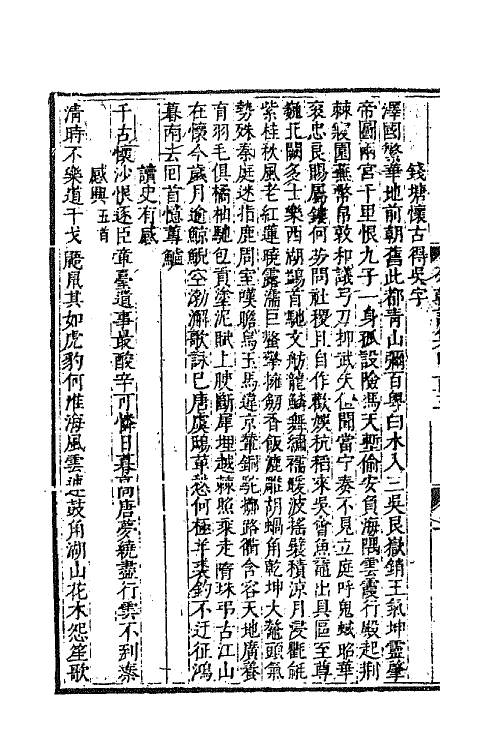 錢塘懷古得吳字
澤國繁華地前朝舊此都青山彌百粵白水入三吳艮嶽銷王氣坤靈肇
帝圖兩宮千里恨九子一身孤設險馮天塹偷安負海隅雲霞行殿起荆
棘寢園蕪幣帛敦和議弓刀抑武夫但聞當宁奏不見立庭呼鬼蜮昭華
衮忠良賜屬鏤何勞問社稷且自作歡娛杭稻來吳會魚黿出具區至尊
巍北闕多士樂西湖鷁首馳文舫龍鱗舞繡襦暖波搖襞積涼月浸氍毹
紫桂秋風老紅蓮曉露濡巨螯擎擁劒香飯漉雕胡蝸角乾坤大鼇頭氣
勢殊秦庭迷指鹿周室嘆瞻烏玉馬違京輦銅駝擲路衢含容天地廣養
育羽毛俱橘柚馳包貢塗泥賦上腴斷犀埋越棘照乘走隋珠弔古江山
在懷今歲月逾鯨鯢空渤澥歌詠已唐虞鴟革愁何極羊裘釣不迂征鴻
暮南去回首憶蓴鱸
讀史有感
千古懷沙恨逐臣章臺遺事最酸辛可憐日暮高唐夢繞盡行雲不到秦
感興五首
清時不樂道干戈鼷鼠其如虎豹何淮海風雲連鼓角湖山花木怨笙歌